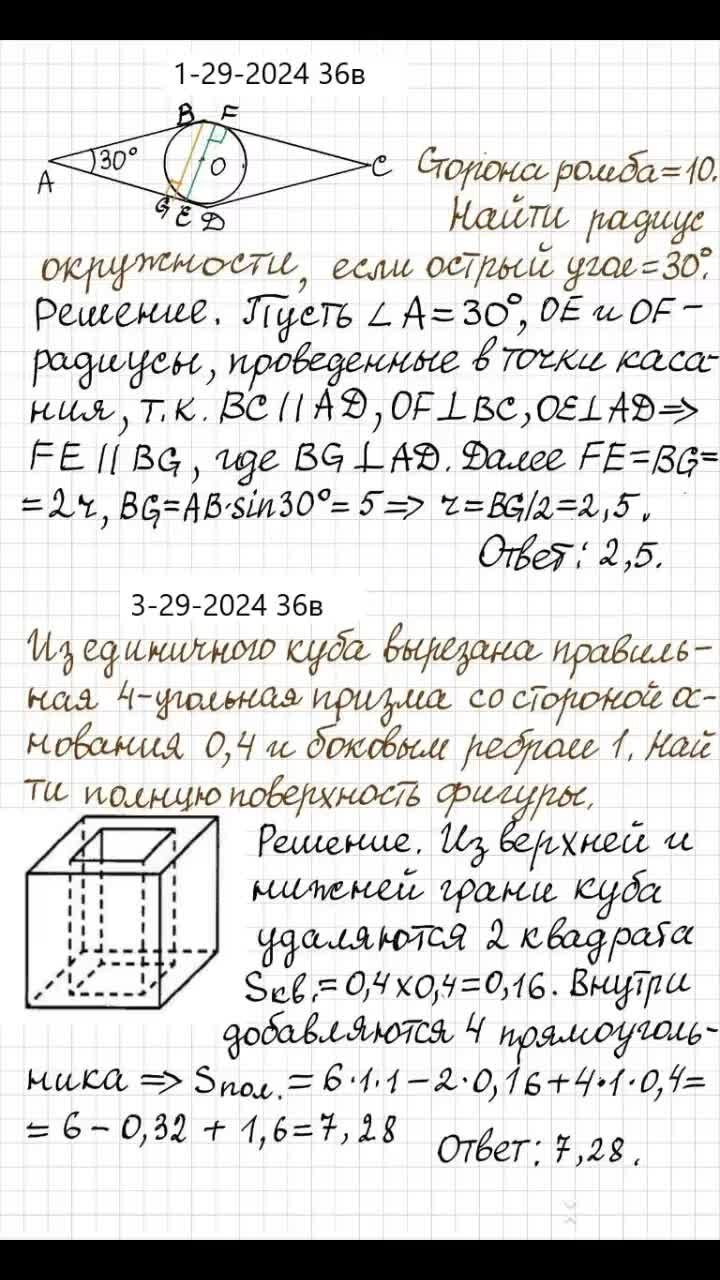 1-29-2024 36в
B F
A 30° O C
G E D
Сторона ромба=10.
Найти радиус
окружности, если острый угол=30°.
Решение. Пусть ∠A=30°, OE и OF-
радиусы, проведенные в точки каса-
ния, т.к. BC // AD, OF⊥BC, OE⊥AD=>
FE // BG, где BG⊥AD. Далее FE=BG=
=2r, BG=AB·sin30°=5=> r=BG/2=2,5.
Ответ: 2,5.
3-29-2024 36в
Из единичного куба вырезана правиль-
ная 4-угольная призма со стороной ос-
нования 0,4 и боковым ребром 1. Най
ти полную поверхность фигуры.
Решение. Из верхней и
нижней грани куба
удаляются 2 квадрата
Sкв.=0,4×0,4=0,16. Внутри
добавляются 4 прямоуголь-
ника => Sпол.=6·1·1-2·0,16+4·1·0,4=
=6-0,32+1,6=7,28
Ответ: 7,28.